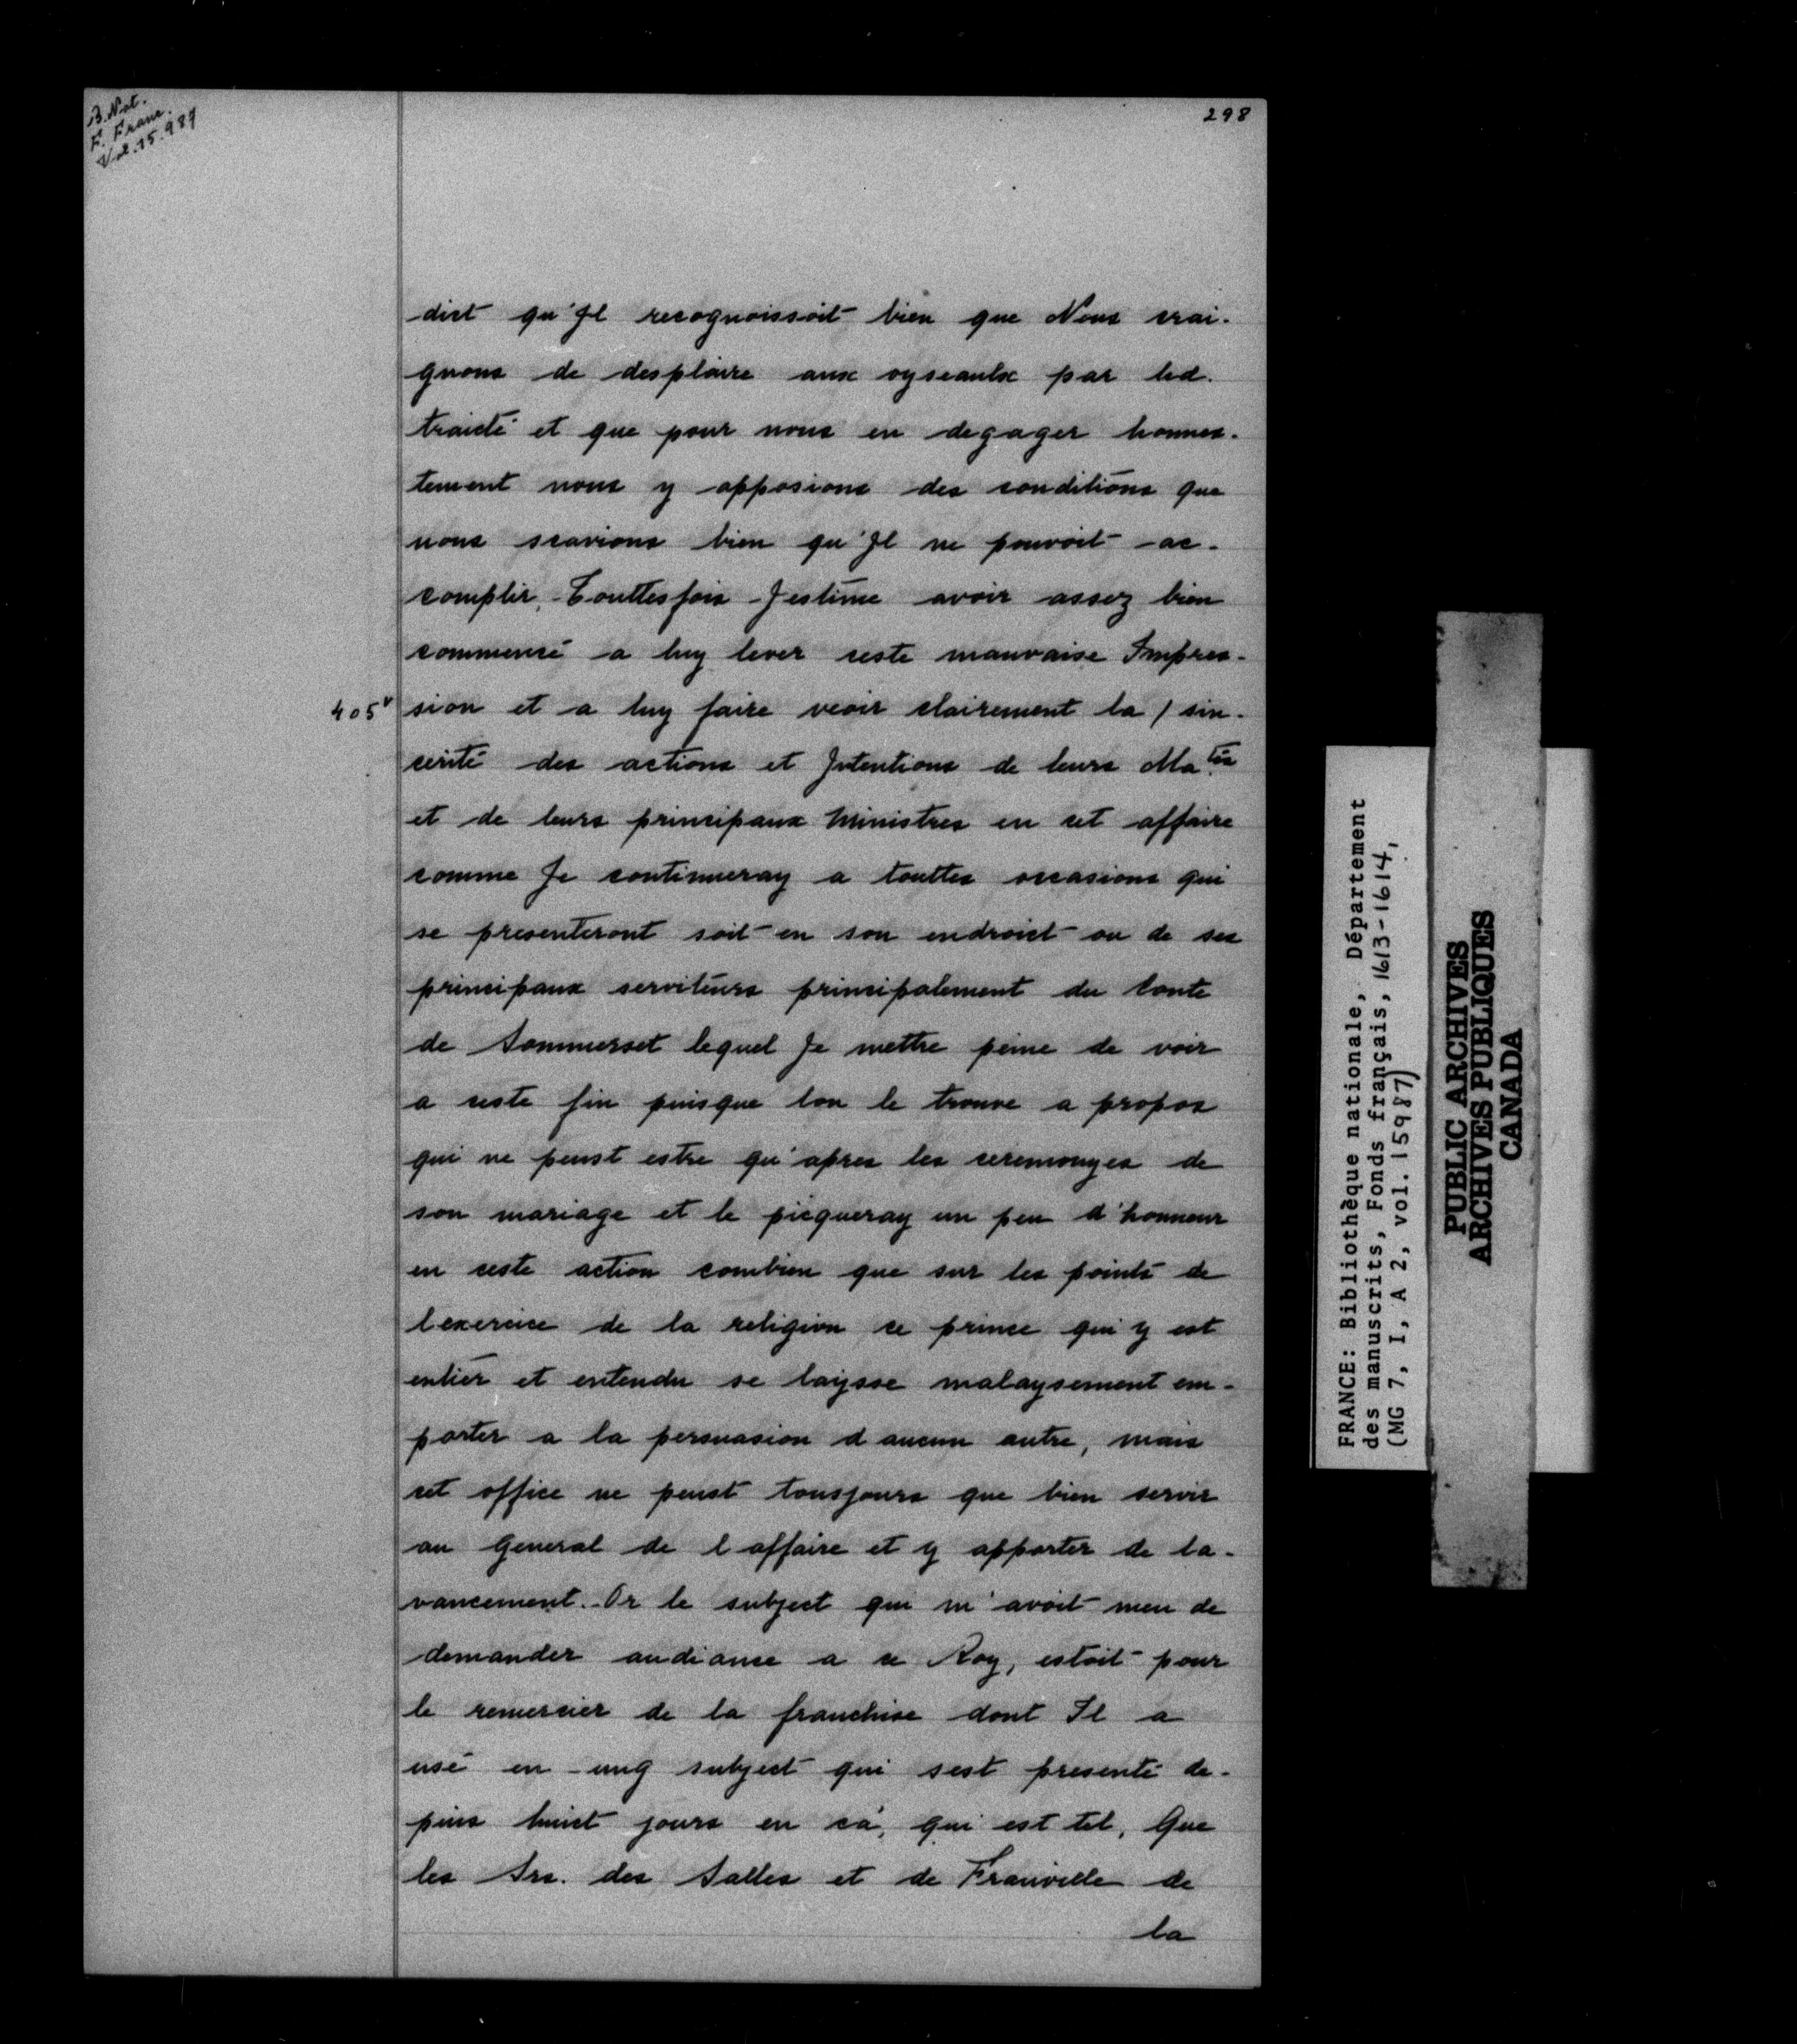 B. Nat.
F. Franc.
Vol. 15.987
298
dict qu'Jl recognoissoit bien que Nous crai-
gnons de desplaire aux oyseaulx par led.
traicté et que pour nous en degager honnes-
tement nous y apposions des conditions que
nous scavions bien qu'Jl ne pouvoit ac-
complir, Touttesfois Jestime avoir assez bien
commencé a luy lever ceste mauvaise Impres-
405v sion et a luy faire veoir clairement la / sin-
cerité des actions et Jntentions de leurs Matés
et de leurs principaux Ministres en cet affaire
comme Je continueray a touttes occasions qui
se presenteront soit en son endroict ou de ses
principaux serviteurs principalement du Conte
de Sommerset lequel Je mettre peine de voir
a ceste fin puisque lon le trouve a propos
qui ne peust estre qu'apres les ceremonyes de
son mariage et le picqueray un peu d'honneur
en ceste action combien que sur les points de
lexercice de la religion ce prince qui y est
entier et entendu se laysse malaysement em-
porter a la persuasion d aucun autre, mais
cet office ne peust tousjours que bien servir
au General de l affaire et y apporter de la-
vancement. Or le subject qui m'avoit meu de
demander audiance a ce Roy, estoit pour
le remercier de la franchise dont Il a
usé en ung subject qui sest presenté de-
puis huict jours en ca, qui est tel, Que
les Srs. des Salles et de Franville de
la
FRANCE: Bibliothèque nationale, Département
des manuscrits, Fonds français, 1613-1614,
(MG 7, I, A 2, vol. 15987)
PUBLIC ARCHIVES
ARCHIVES PUBLIQUES
CANADA